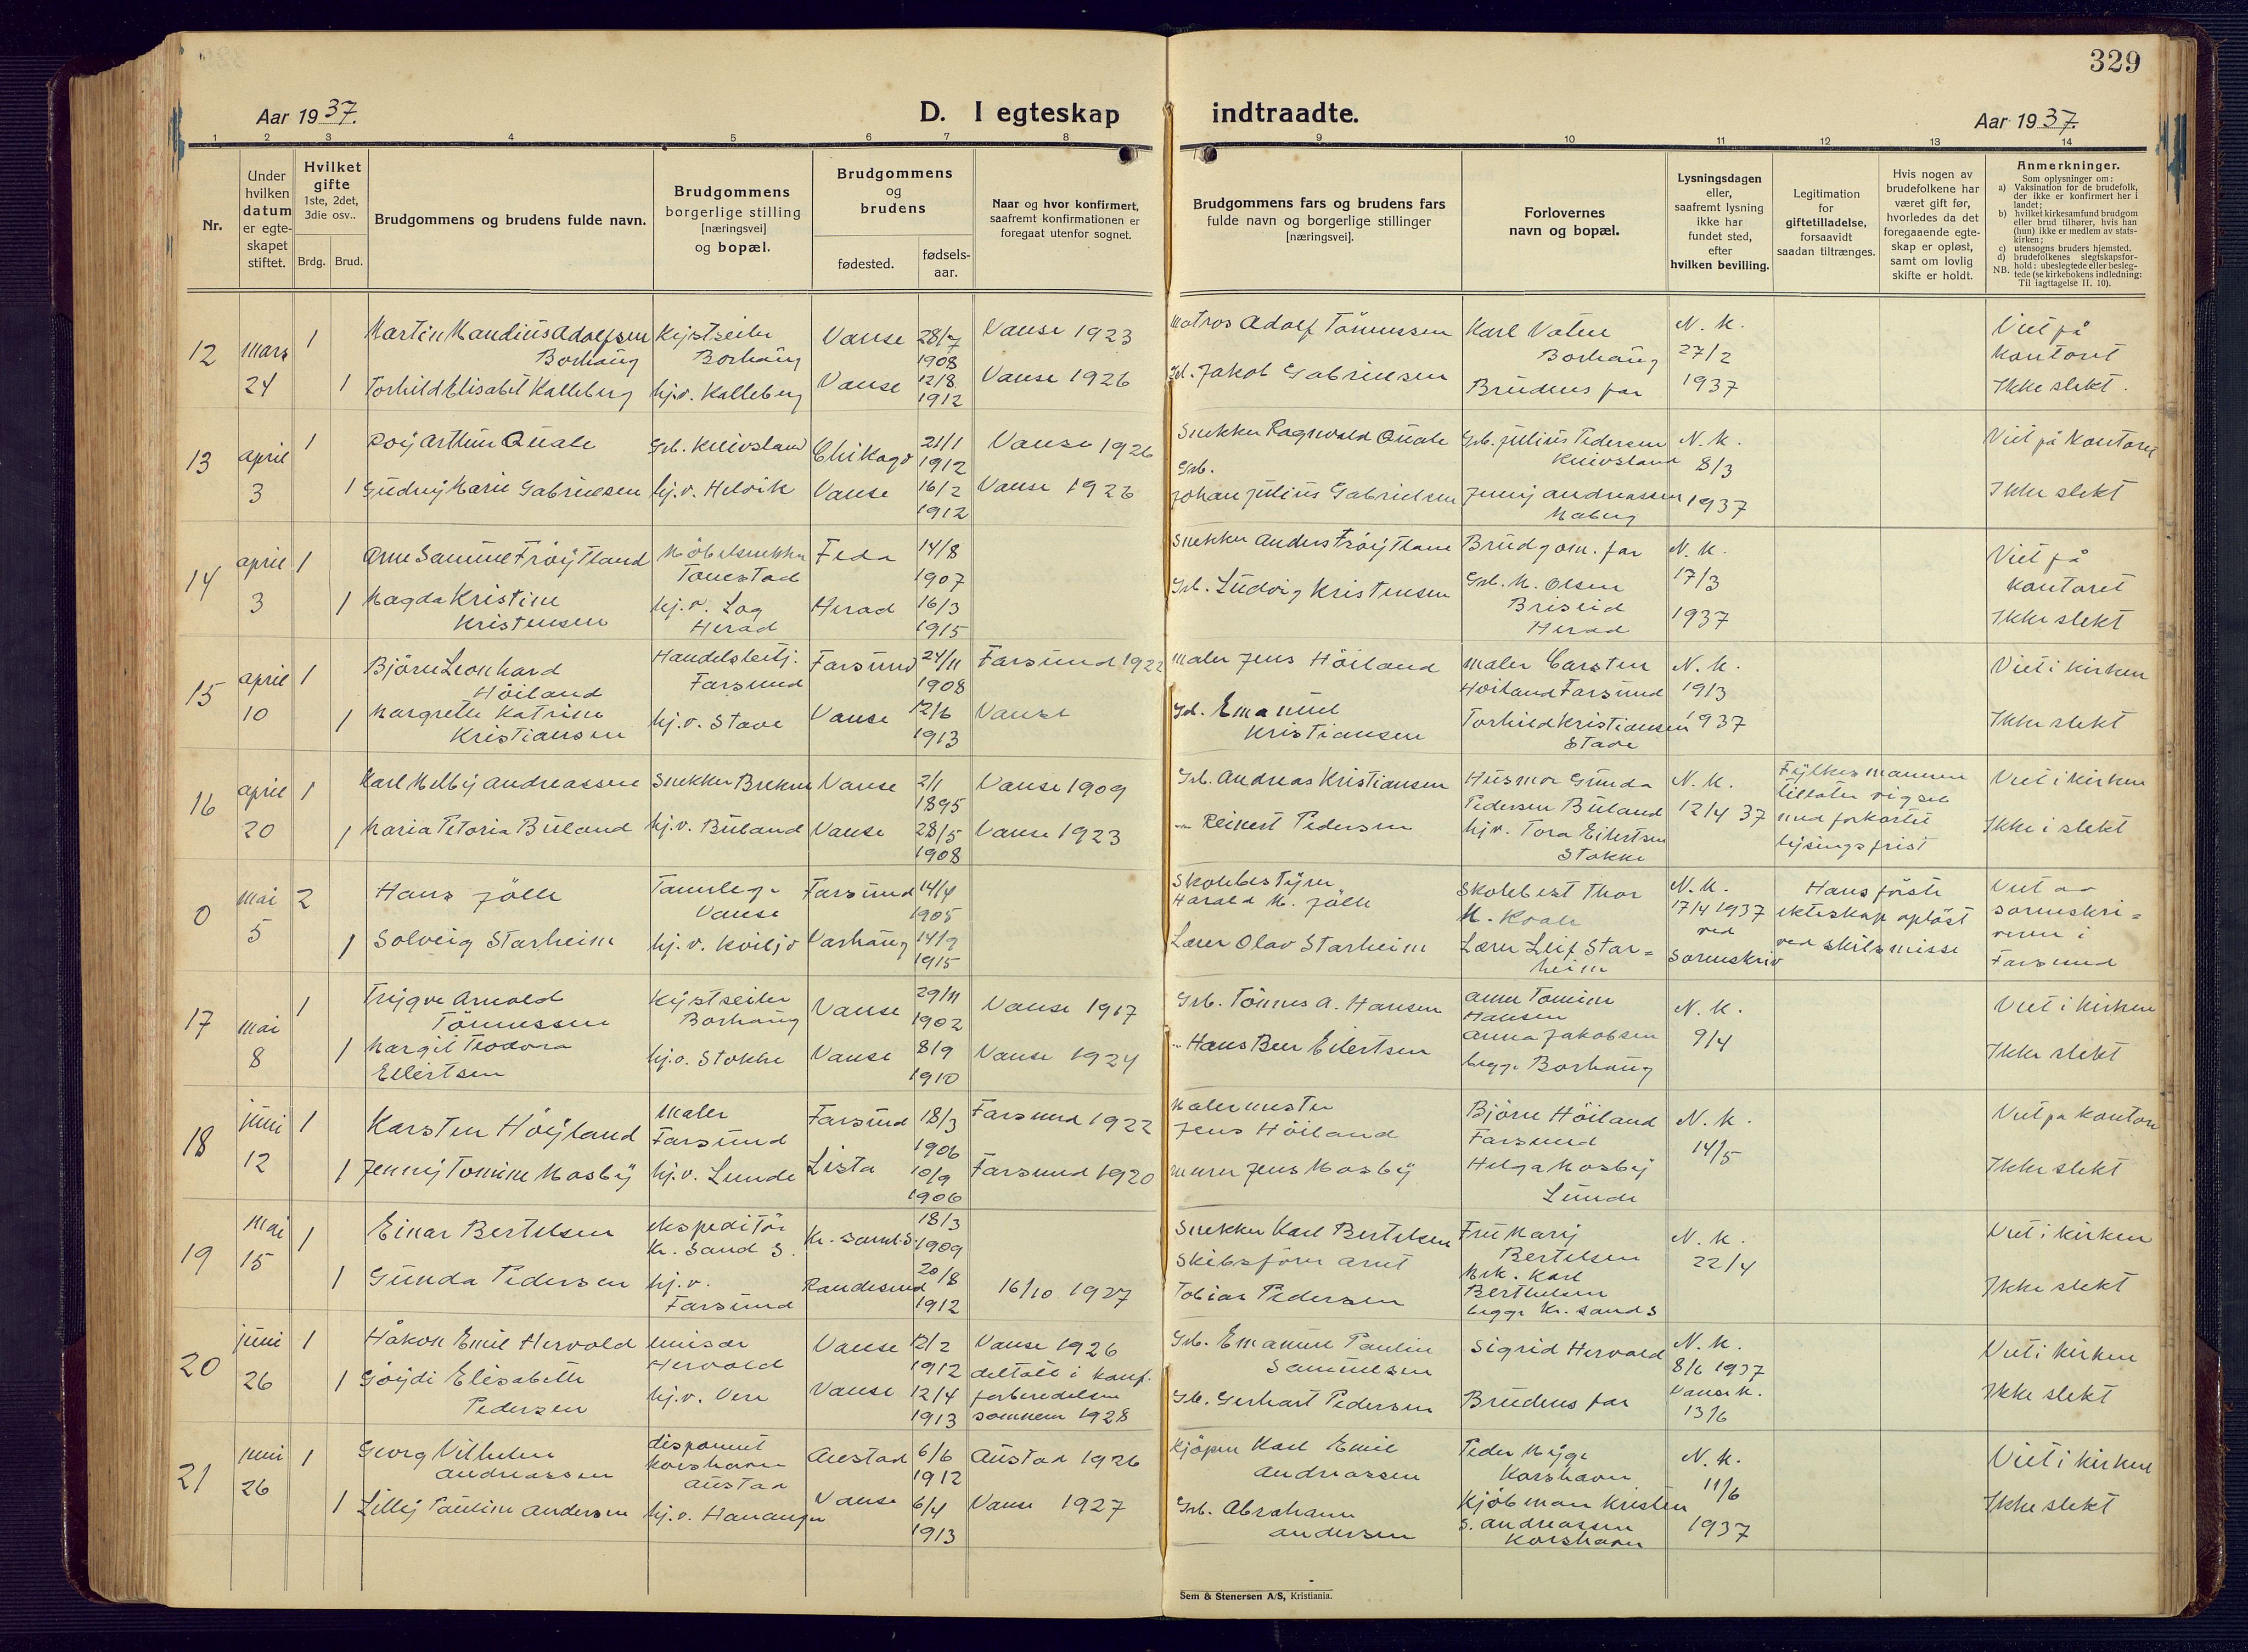 329
Aar 1937.
D. I egteskap indtraadte.
Aar 1937.
1 2 3 4 5 6 7 8 9 10 11 12 13 14
Nr.
Under hvilken datum er egte-skapet stiftet.
Hvilket gifte 1ste, 2det, 3die osv..
Brdg. Brud.
Brudgommens og brudens fulde navn.
Brudgommens borgerlige stilling [næringsvei] og bopæl.
Brudgommens og brudens
fødested.
fødsels-aar.
Naar og hvor konfirmert, saafremt konfirmationen er foregaat utenfor sognet.
Brudgommens fars og brudens fars fulde navn og borgerlige stillinger [næringsvei].
Forlovernes navn og bopæl.
Lysningsdagen eller, saafremt lysning ikke har fundet sted, efter hvilken bevilling.
Legitimation for giftetilladelse, forsaavidt saadan tiltrænges.
Hvis nogen av brudefolkene har været gift før, hvorledes da det foregaaende egte-skap er opløst, samt om lovlig skifte er holdt.
Anmerkninger.
Som oplysninger om:
a) Vaksination for de brudefolk, der ikke er konfirmert her i landet;
b) hvilket kirkesamfund brudgom eller brud tilhører, hvis han (hun) ikke er medlem av stats-kirken;
c) utensogns bruders hjemsted.
d) brudefolkenes slegtskapsfor-hold: ubeslegtede eller besleg-tede (se kirkebokens indledning:
NB. Til iagttagelse II. 10).
12 mars 24
1 Martin Mandius Adolfsen Borhaug Kystseiler Borhaug Vanse 28/7 1908 Vanse 1923 Matros Adolf Tönnessen Karl Vatne Borhaug N. K. 27/2 1937 Viet på kontoret
1 Torhild Elisabet Kalleberg hj.v. Kalleberg Vanse 12/8 1912 Vanse 1926 Gd. Jakob Gabrielsen Brudens far Ikke slekt.
13 april 3
1 Roy Arthur Quale Grb. Knivsland Chikago 21/1 1912 Vanse 1926 Snekker Ragnvald Quale Grb. Julius Pedersen Knivsland N. K. 8/3 1937 Viet på kontoret
1 Gudny Marie Gabrielsen hj.v. Helvik Vanse 16/2 1912 Vanse 1926 Grb. Johan Julius Gabrielsen Jenny Andreassen Maberg Ikke slekt
14 april 3
1 Arne Samuel Fröytland Möbelsnekker Tonestad Feda 14/8 1907 Snekker Anders Fröytland Brudgom. far N. K. 17/3 1937 Viet på kontoret
1 Magda Kristine Kristensen hj.v. Log Herad Herad 16/3 1915 Grb. Ludvig Kristensen Grb. M. Olsen Briseid Herad Ikke slekt
15 april 10
1 Björn Leonhard Höiland Handelsbetj. Farsund Farsund 24/11 1908 Farsund 1922 Maler Jens Höiland Maler Carsten Höiland Farsund N. K. 19/3 1937 Viet i kirken
1 Margrethe Katrine Kristiansen hj.v. Stave Vanse 12/6 1913 Vanse Gd. Emanuel Kristiansen Torhild Kristiansen Stave Ikke slekt
16 april 20
1 Karl Melby Andreassen Snekker Brekne Vanse 2/1 1895 Vanse 1909 Grb. Andreas Kristiansen Husmor Gunda Pedersen Buland N. K. 12/4 37 Fylkesmannen tillater vigsel med forkortet lysingsfrist Viet i kirken
1 Maria Petoria Buland hj.v. Buland Vanse 28/5 1908 Vanse 1923 — Reinert Pedersen hj.v. Tora Eilertsen Stokke Ikke i slekt
0 mai 5
2 Hans Jölle Tannlege Vanse Farsund 14/4 1905 Skolebestyrer Harald M. Jölle Skolebest Thor M. Kvale N. K. 17/4 1937 ved Sorenskriv Hans förste ekteskap oplöst ved skilsmisse Viet av sorenskri-veren i Farsund
1 Solveig Starheim hj.v. Kviljo Varhaug 14/9 1915 Lærer Olav Starheim Lærer Leif Star-heim
17 mai 8
1 Trygve Arnold Tönnessen Kystseiler Borhaug Vanse 29/11 1902 Vanse 1917 Grb. Tönnes A. Hansen Anne Tomine Hansen N. K. 9/4 Viet i kirken
1 Margit Teodora Eilertsen hj.v. Stokke Vanse 8/9 1910 Vanse 1924 — Hans Beer Eilertsen Anna Jakobsen begge Borhaug Ikke slekt
18 juni 12
1 Karsten Höyland Maler Farsund Farsund 18/3 1906 Farsund 1922 Malermester Jens Höiland Björn Höiland Farsund N. K. 14/5 Viet pa kontor
1 Jenny Tomine Mosby hj.v. Lunde Lista 10/9 1906 Farsund 1920 murer Jens Mosby Helga Mosby Lunde Ikke slekt
19 mai 15
1 Einar Bertelsen ekspeditör Kr. Sand S. Kr. sand. S. 18/3 1909 Snekker Karl Bertelsen Fru Mary Bertelsen N. K. 22/4 Viet i kirken
1 Gunda Pedersen hj.v. Farsund Randesund 20/8 1912 16/10 1927 Skibsförer Arnt Tobias Pedersen Mek. Karl Berthelsen begge Kr. sand S Ikke slekt
20 juni 26
1 Håkon Emil Hervold Hervold Vanse 12/2 1912 Vanse 1926 Grb. Emanuel Paulin Samuelsen Sigrid Hervold N. K. 8/6 1937 Vanse K. 13/6 Viet i kirken
1 Göydi Elisabeth Pedersen hj.v. Vere Vanse 12/4 1913 deltatt i konf. forberedelsen sommeren 1928 Gb. Gerhart Pedersen Brudens far Ikke slekt
21 juni 26
1 Georg Vilhelm Andreassen disponent Korshavn Austad Austad 6/6 1912 Austad 1926 Kjöpm Karl Emil Andreassen Peder Nyge Korshavn N. K. 11/6 1937 Viet i kirken
1 Lilly Pauline Andersen hj.v. Hananger Vanse 6/4 1913 Vanse 1927 Grb. Abraham Andersen Kjöbman Kristen S. Andreassen Korshavn Ikke slekt
Sem & Stenersen A/S, Kristiania.